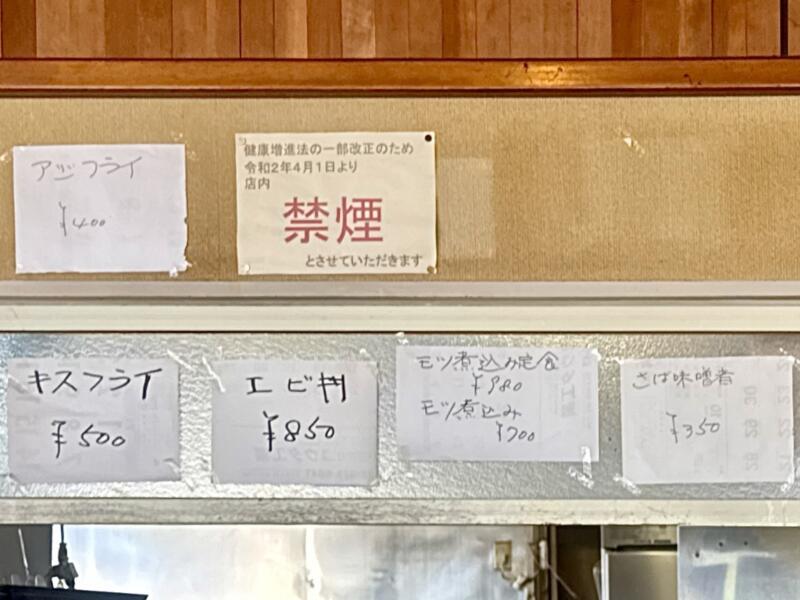 アジフライ
¥400
健康増進法の一部改正のため
令和2年4月1日より
店内
禁煙
とさせていただきます
キスフライ
¥500
エビ丼
¥850
モツ煮込み定食
¥980
モツ煮込み
¥700
さば味噌煮
¥350